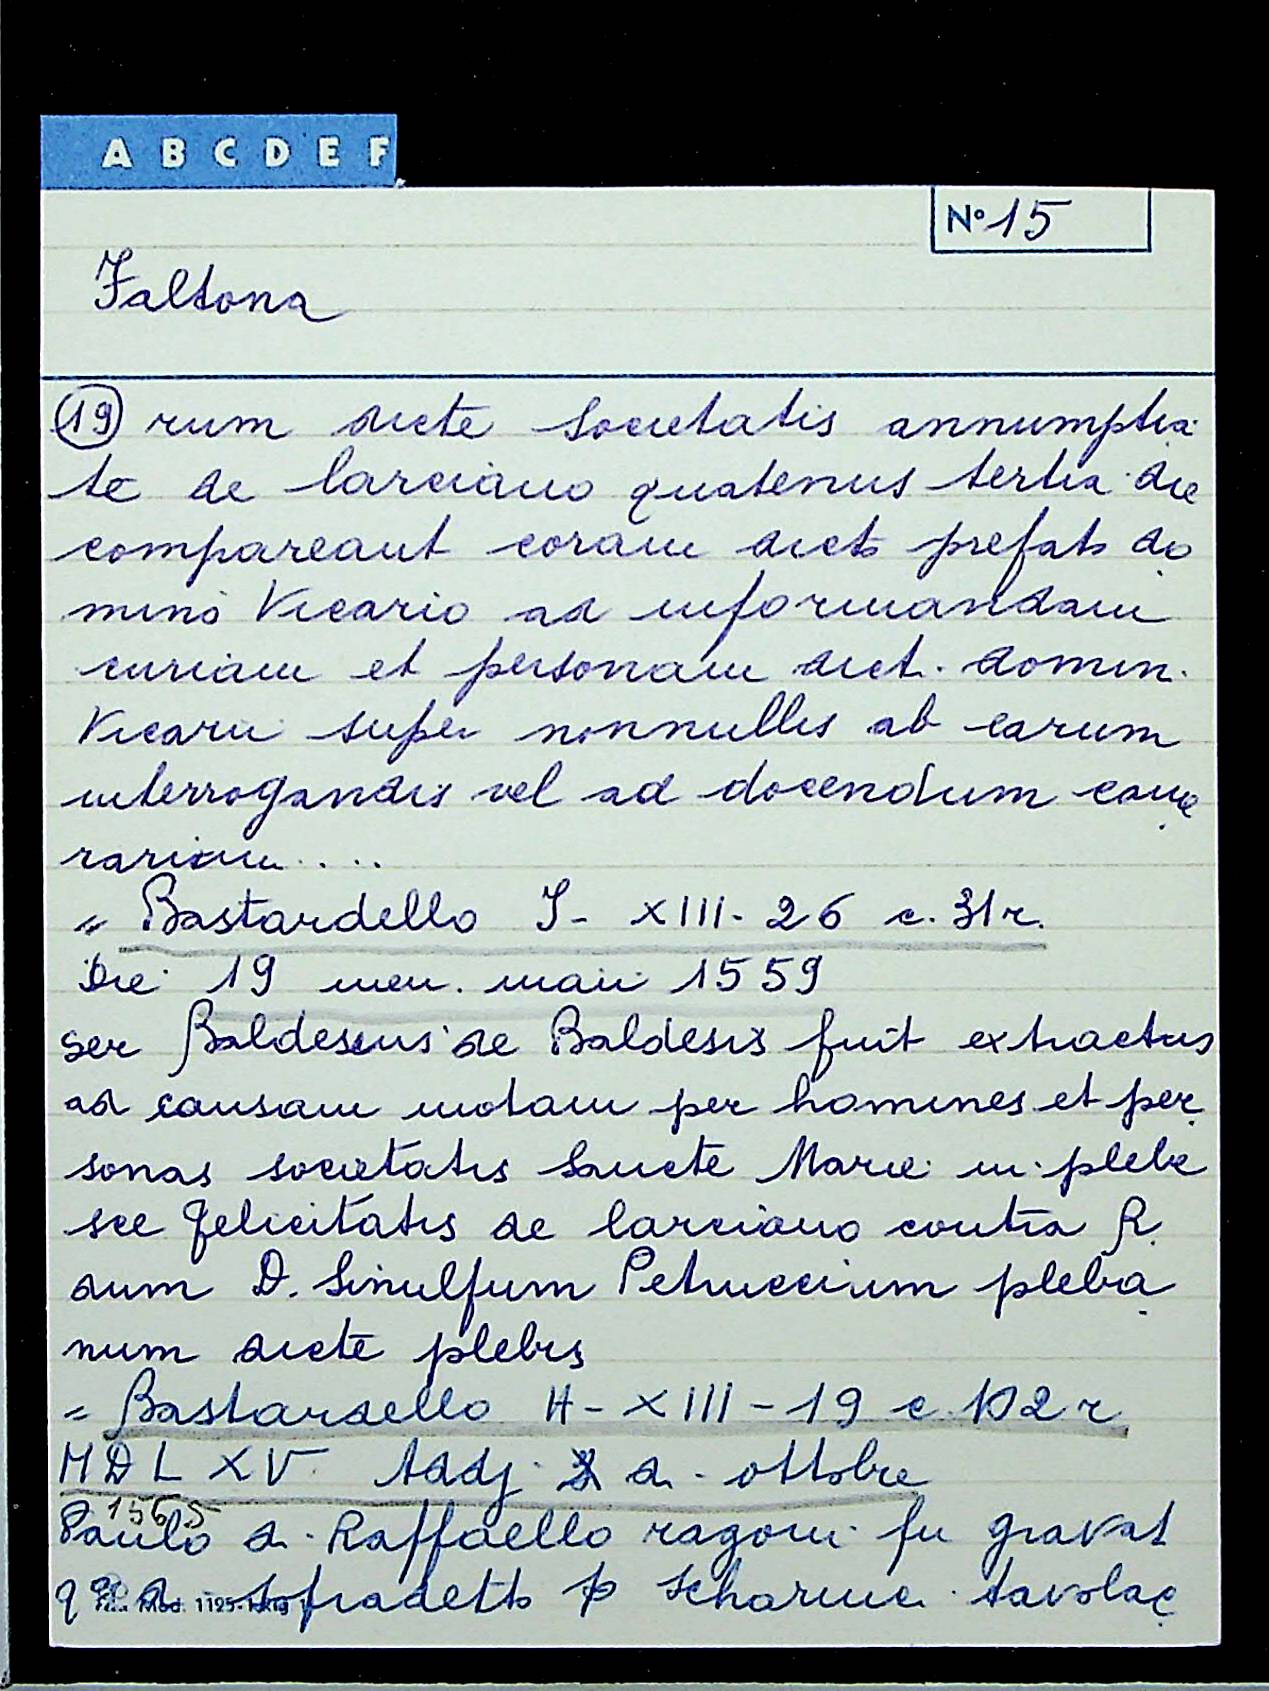 A B C D E F
Nº 15
Faltona
19 rum dicte Societatis annumptia
te de larciano quatenus tertia die
compareant coram dicto prefato do
mino Vicario ad informandam
curiam et personam dict. domin.
Vicarii super nonnullis ab earum
interrogandis vel ad docendum came
rarium....
" Bastardello I - XIII - 26 c. 31 r.
Die 19 men. maii 1559
ser Baldesius de Baldesis fuit extractus
ad causam motam per homines et per
sonas societatis Sancte Marie in plebe
sce felicitatis de larciano contra R.
dum D. Sinulfum Petruccium pleba
num dicte plebis
= Bastardello H - XIII - 19 c. 102 r
MDLXV Addj 2 d. ottobre
1565
Paulo d. Raffaello ragoni fu gravat
sofradetto p scharme tavolac